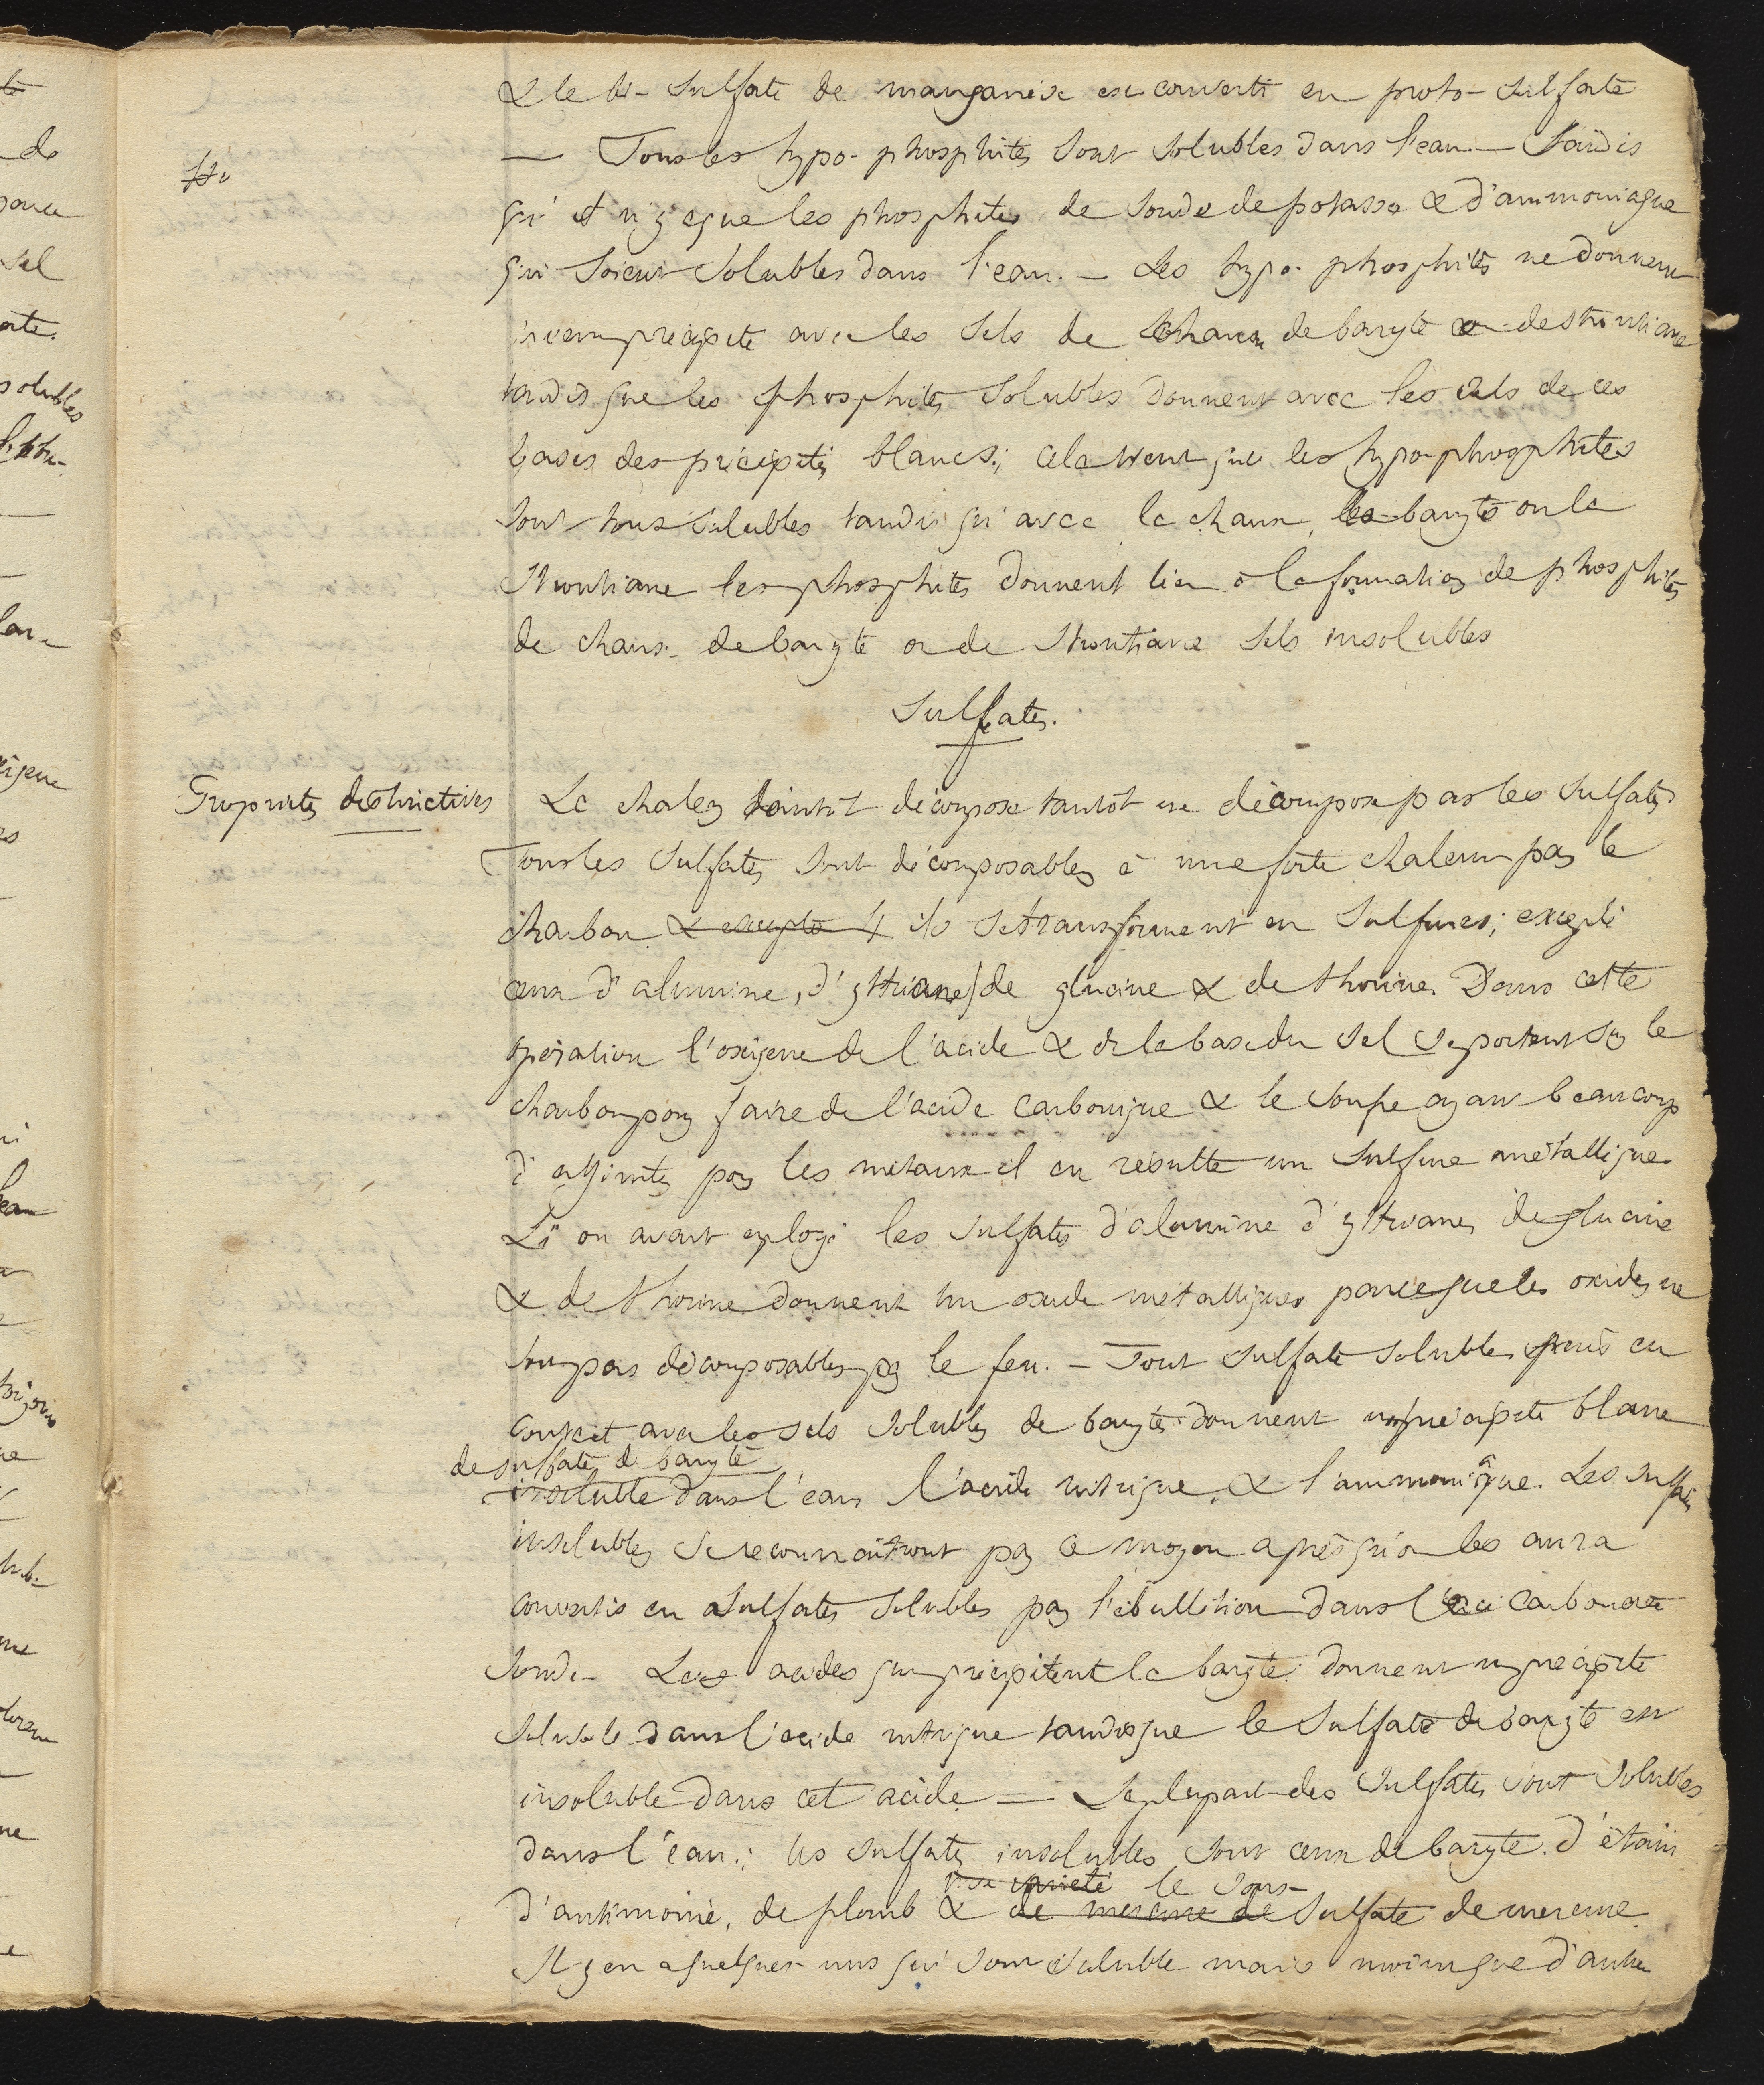 & le bi-sulfate de manganèse est converti en proto-sulfate
— Tous les hypo-phosphites sont solubles dans l'eau — tandis
qu'il n'y a que les phosphites de soude de potasse & d'ammoniaque
qui soient solubles dans l'eau. — Les hypo-phosphites ne donnent
aucun précipité avec les sels de chaux de baryte ou de strontiane
tandis que les phosphites solubles donnent avec les sels de ces
bases des précipités blancs; cela vient que les hypo-phosphites
sont tous solubles tandis qu'avec la chaux, la baryte ou la
strontiane les phosphites donnent lieu à la formation de phosphites
de chaux de baryte ou de strontiane sels insolubles
Sulfates.
Propriétés distinctives
La chaleur tantôt décompose tantôt ne décompose pas les sulfates
Tous les sulfates sont décomposables à une forte chaleur par le
charbon & excepté 4 ils se transforment en sulfures; excepté
ceux d'alumine, d'yttriane, de glucine & de thorine. Dans cette
opération l'oxigene de l'acide & de la base du sel se portent sur le
charbon pour faire de l'acide carbonique & le soufre ayant beaucoup
d'affinités pour les métaux il en résulte un sulfure métallique
Si on avait employé les sulfates d'alumine d'yttriane, de glucine
& de thorine donnent un oxide métallique parceque les oxides ne
sont pas décomposables par le feu. — Tout sulfate soluble mis en
contact avec les sels solubles de baryte donnent un précipité blanc
de sulfate de baryte
insoluble dans l'eau l'acide nitrique, & l'ammoniaque. Les sulfates
insolubles se reconnaîtront par ce moyen après qu'on les aura
convertis en sulfates solubles par l'ébullition dans le carbonate
soude — Les acides qui précipitent la baryte donnent un précipité
soluble dans l'acide nitrique tandis que le sulfate de baryte est
insoluble dans cet acide — La plupart des sulfates sont solubles
dans l'eau; les sulfates insolubles sont ceux de baryte. d'étain
le sous-
d'antimoine, de plomb & de mercure de sulfate de mercure
Il y en a quelques uns qui sont soluble mais moins que d'autre